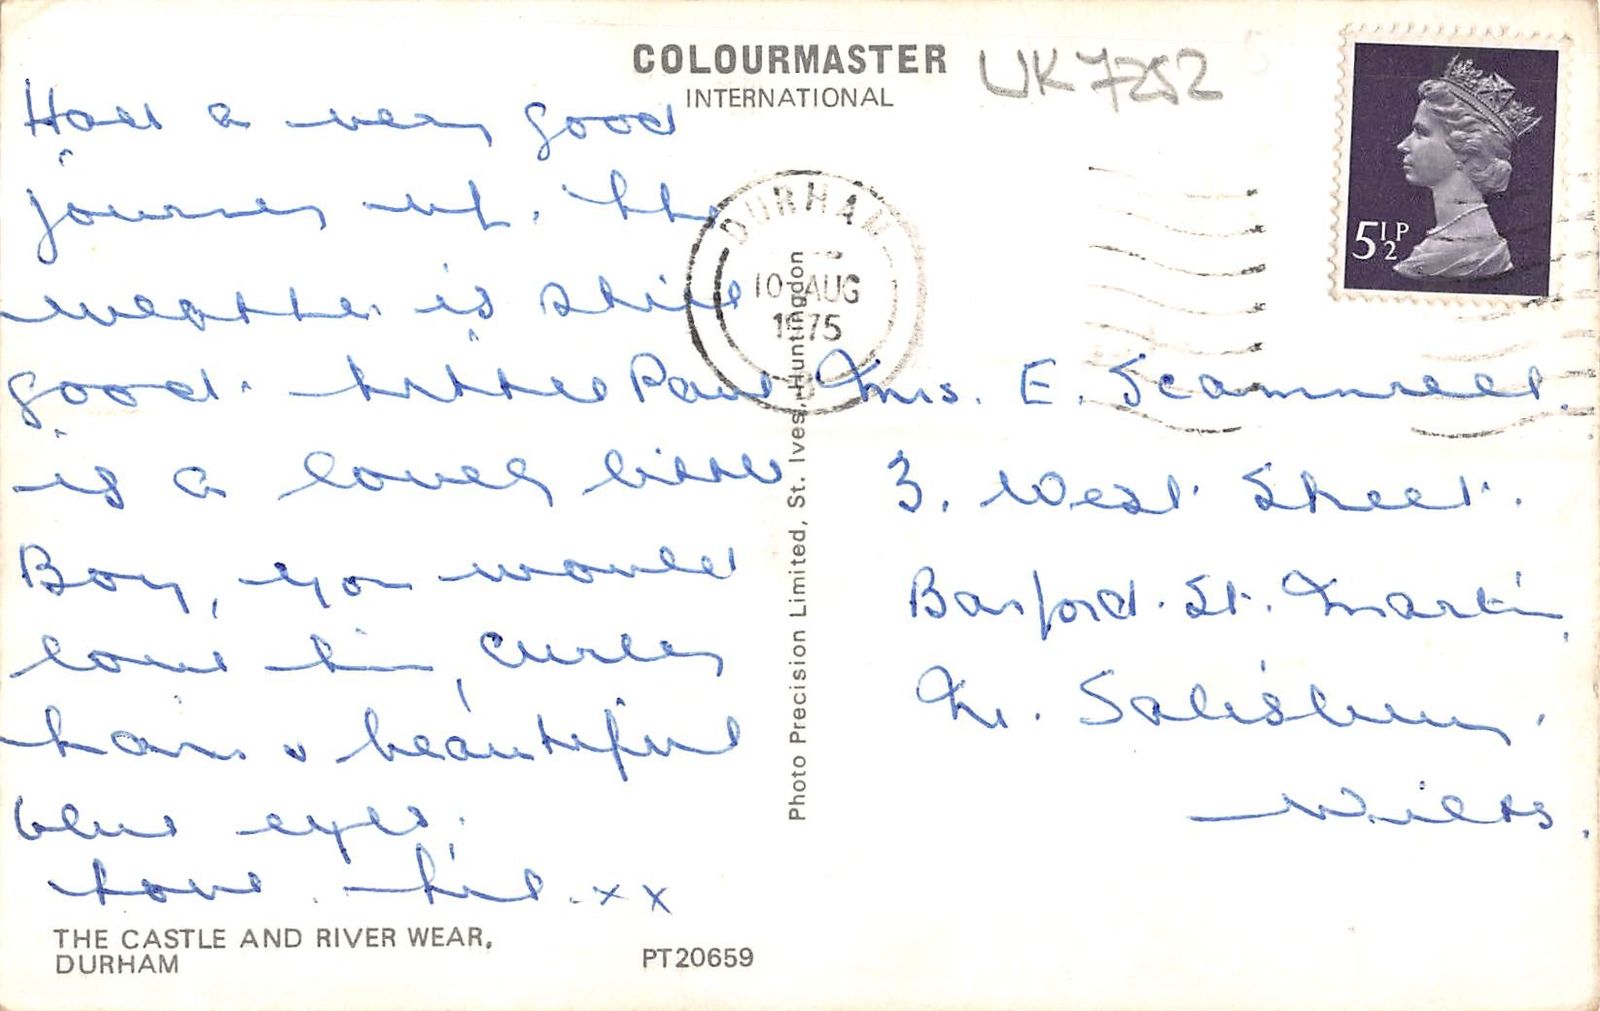 COLOURMASTER
INTERNATIONAL
UK 7252
Had a very good
journey up. The
weather is still
good. Little Paul
is a lovely little
Boy, you would
love him, curley
hair & beautiful
blue eyes.
love
xx
THE CASTLE AND RIVER WEAR,
DURHAM
PT20659
Photo Precision Limited, St. Ives, Huntingdon
DURHAM
10 AUG
1975
5½P
Mrs. E. Scammell.
3. West Street.
Barford. St. Martin,
Nr. Salisbury.
Wilts.